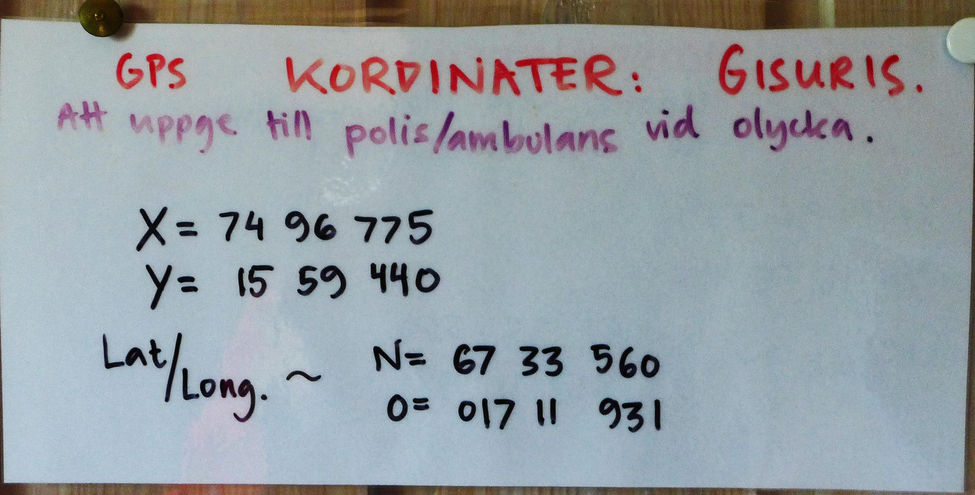 GPS KORDINATER: GISURIS.
Att uppge till polis/ambulans vid olycka.
X= 74 96 775
Y= 15 59 440
Lat/Long. ~ N= 67 33 560
O= 017 11 931